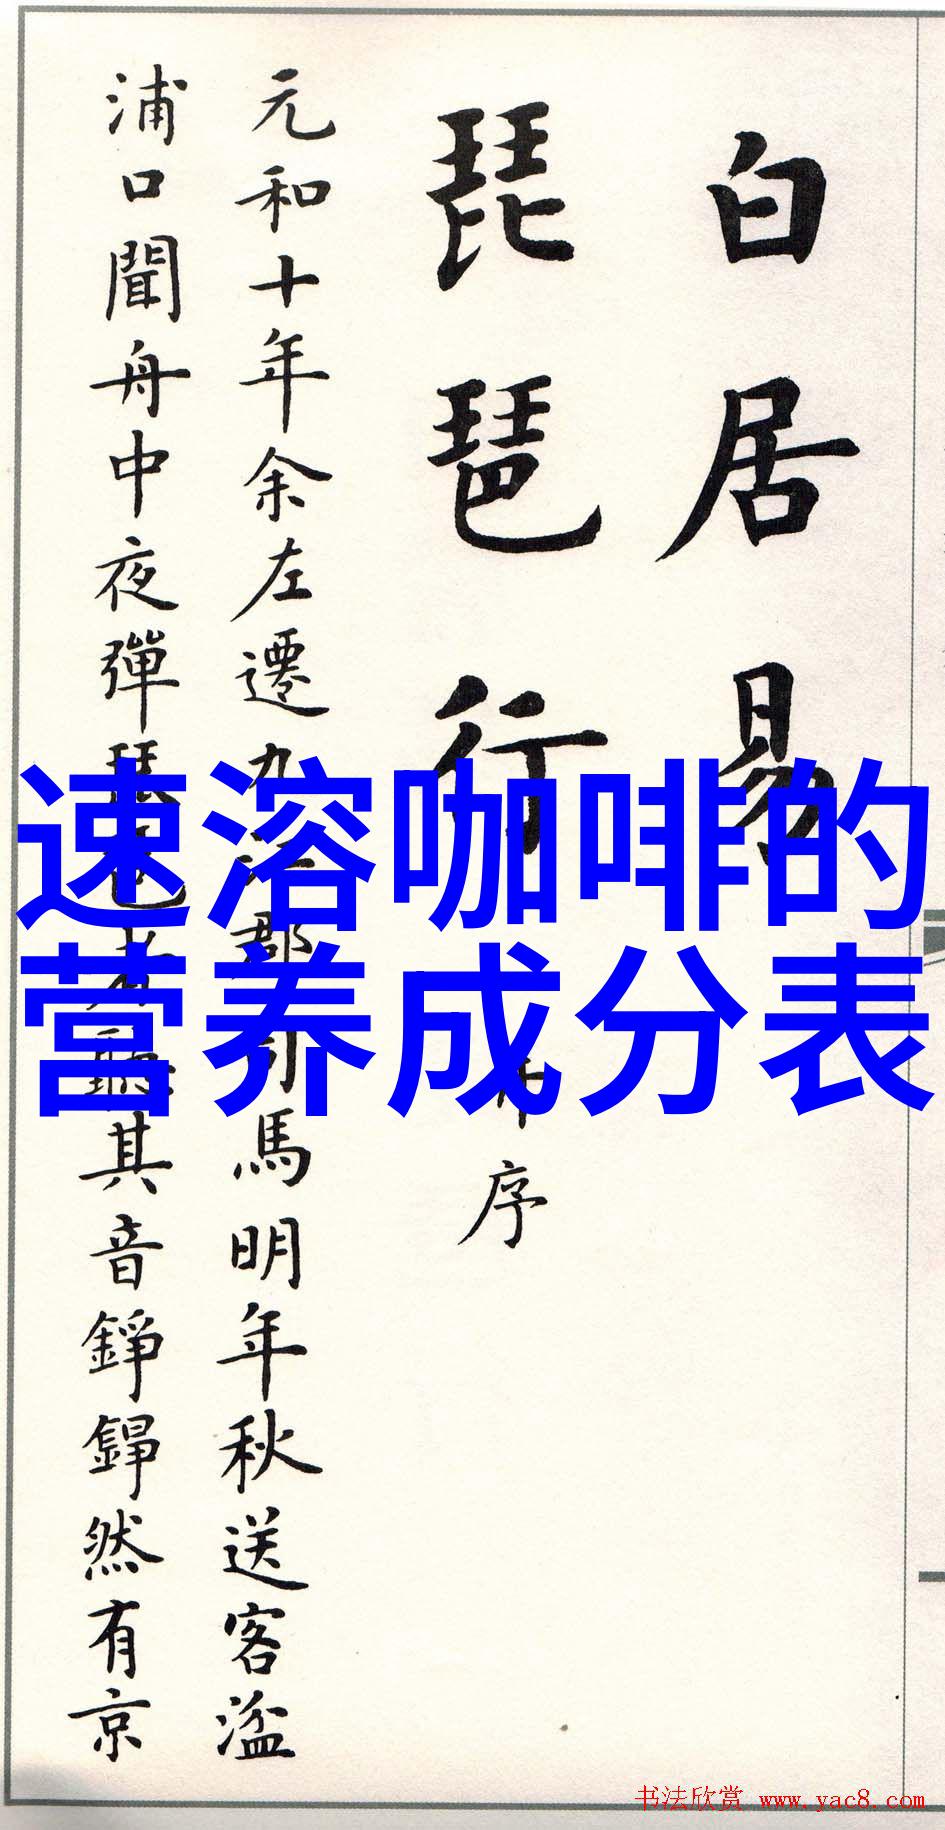 白居易
琵琶行
并序
元和十年余左遷九江郡司馬明年秋送客湓
浦口聞舟中夜彈琵琶者聽其音錚錚然有京
速溶咖啡的
营养成分表
书法欣赏 www.yac8.com